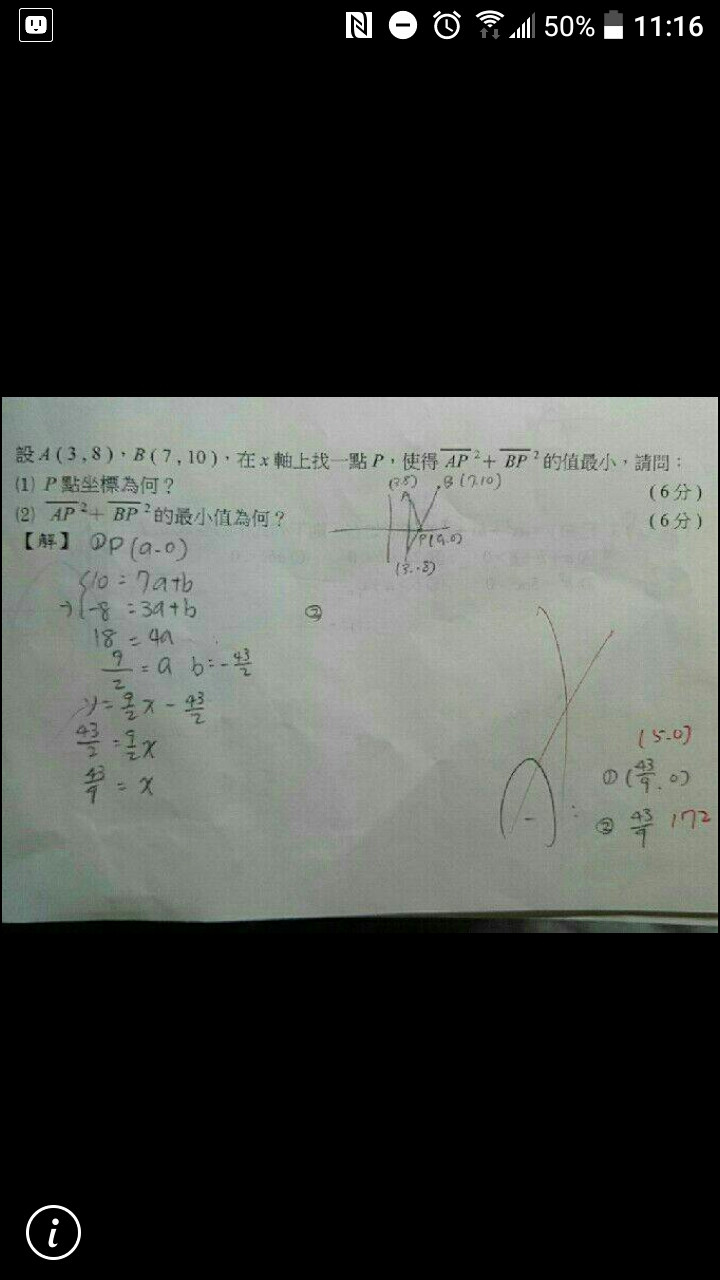 50% 11:16
設A(3,8),B(7,10),在x軸上找一點P,使得AP²+BP²的值最小,請問:
(1) P點坐標為何? (6分)
(2) AP²+BP²的最小值為何? (6分)
(3.8) B(7,10)
A
P(a.0)
(3.-8)
【解】 ①P(a-0)
10=7a+b
→ -8=3a+b
18=4a
9/2=a b=-43/2
y=9/2x-43/2
43/2=9/2x
43/9=x
②
(5.0)
① (43/9.0)
② 43/9 172
i